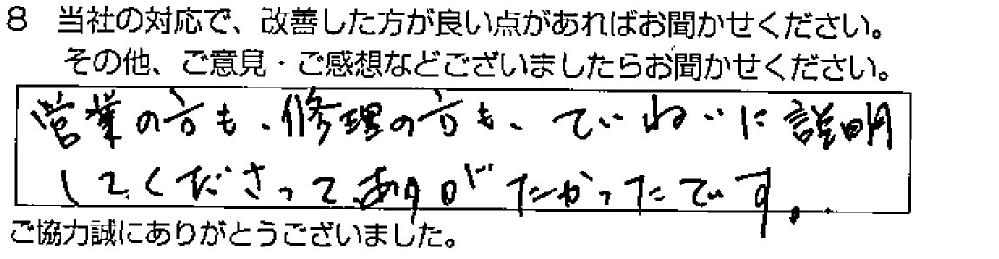 8 当社の対応で、改善した方が良い点があればお聞かせください。
その他、ご意見・ご感想などございましたらお聞かせください。
営業の方も、修理の方も、ていねいに説明
してくださって、ありがたかったです。
ご協力誠にありがとうございました。